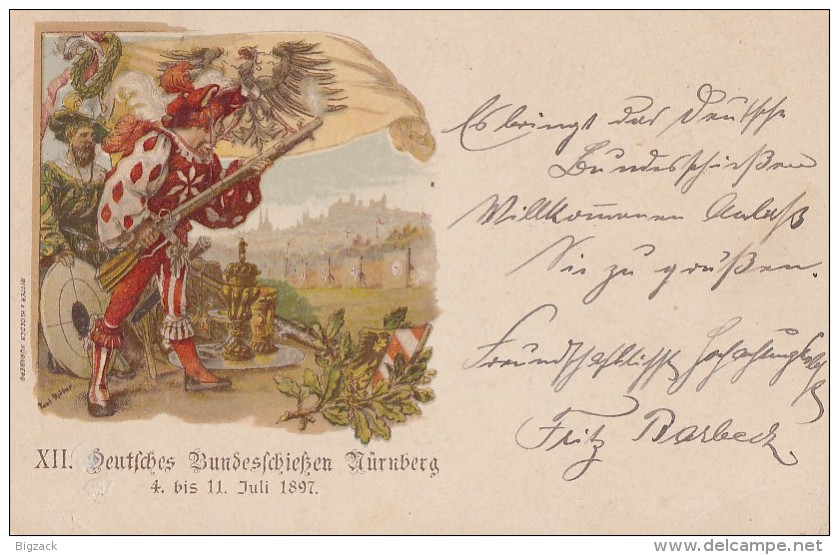 Es bringt das Deutsche
Bundesschießen
Willkommenen Anlaß
Sie zu grüßen.
Freundschaftlichst Hochachtungsvollst
Fritz Barbeck
RITTER & KLOEDEN NÜRNBERG
Paul Ritter
XII. Deutsches Bundesschießen Nürnberg
4. bis 11. Juli 1897.
Bigzack
www.delcampe.net